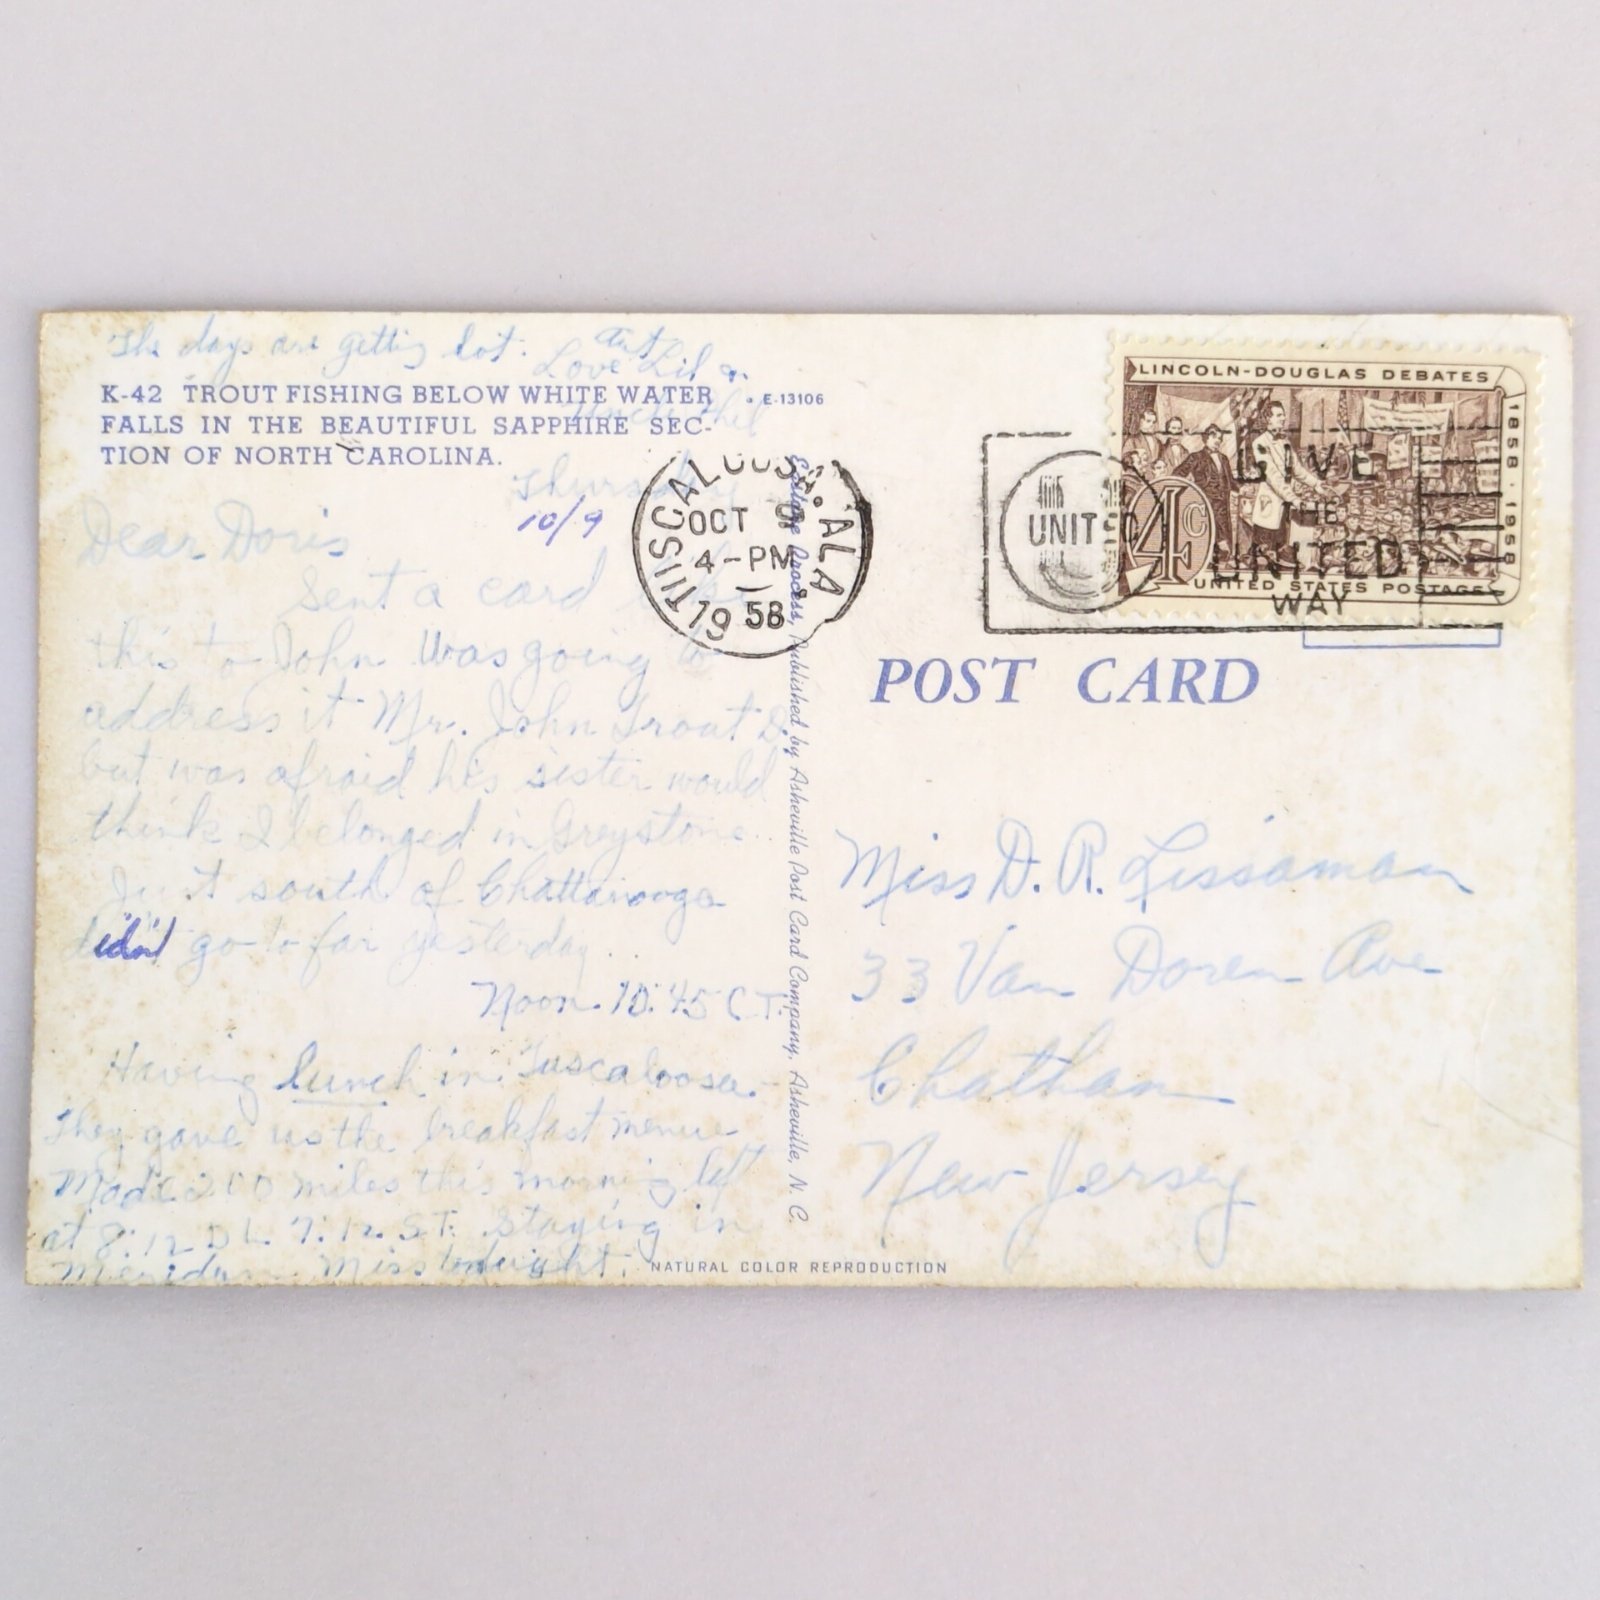 The days are getting hot. Aunt
Love Lil &
Uncle Phil
K-42 TROUT FISHING BELOW WHITE WATER
FALLS IN THE BEAUTIFUL SAPPHIRE SEC-
TION OF NORTH CAROLINA.
E-13106
Thursday
10/9
Dear Doris
Sent a card like
this to John Was going to
address it Mr. John Trout D.
but was afraid his sister would
think I belonged in Greystone.
Just south of Chattanooga
didn't go to far yesterday..
Noon. 10:45 C.T.
Having lunch in Tuscaloosa.
They gave us the breakfast menue
Made 200 miles this morning left
at 8:12 D.L. 7:12 S.T. Staying in
Meridian Miss tonight.
TUSCALOOSA. ALA
OCT 9
4-PM
1958
Published by Asheville Post Card Company, Asheville, N. C.
LINCOLN-DOUGLAS DEBATES
1858·1958
4c
UNITED STATES POSTAGE
UNITED
GIVE
THE
UNITED
WAY
POST CARD
Miss D. R. Lissaman
33 Van Doren Ave
Chatham
New Jersey
NATURAL COLOR REPRODUCTION